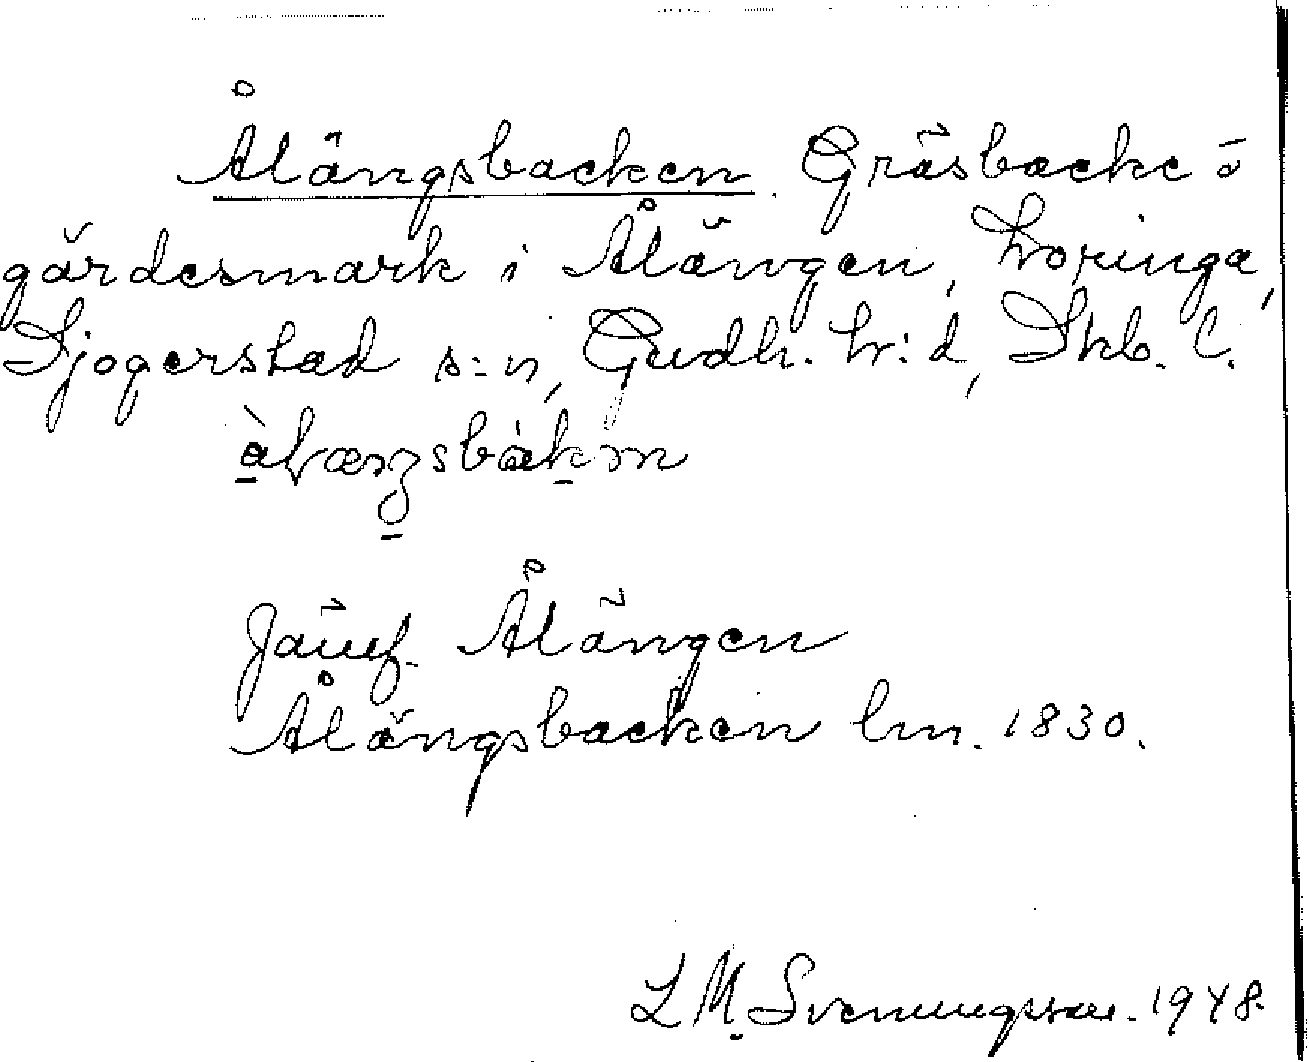 Ålängsbacken. Gräsbacke ö
gärdesmark i Ålängen, Loringa,
Sjogerstad s:n, Gudh. h:d, Skb. l.
Jämf. Ålängen
Ålängsbacken lm. 1830.
L M Svenungsson. 1948.